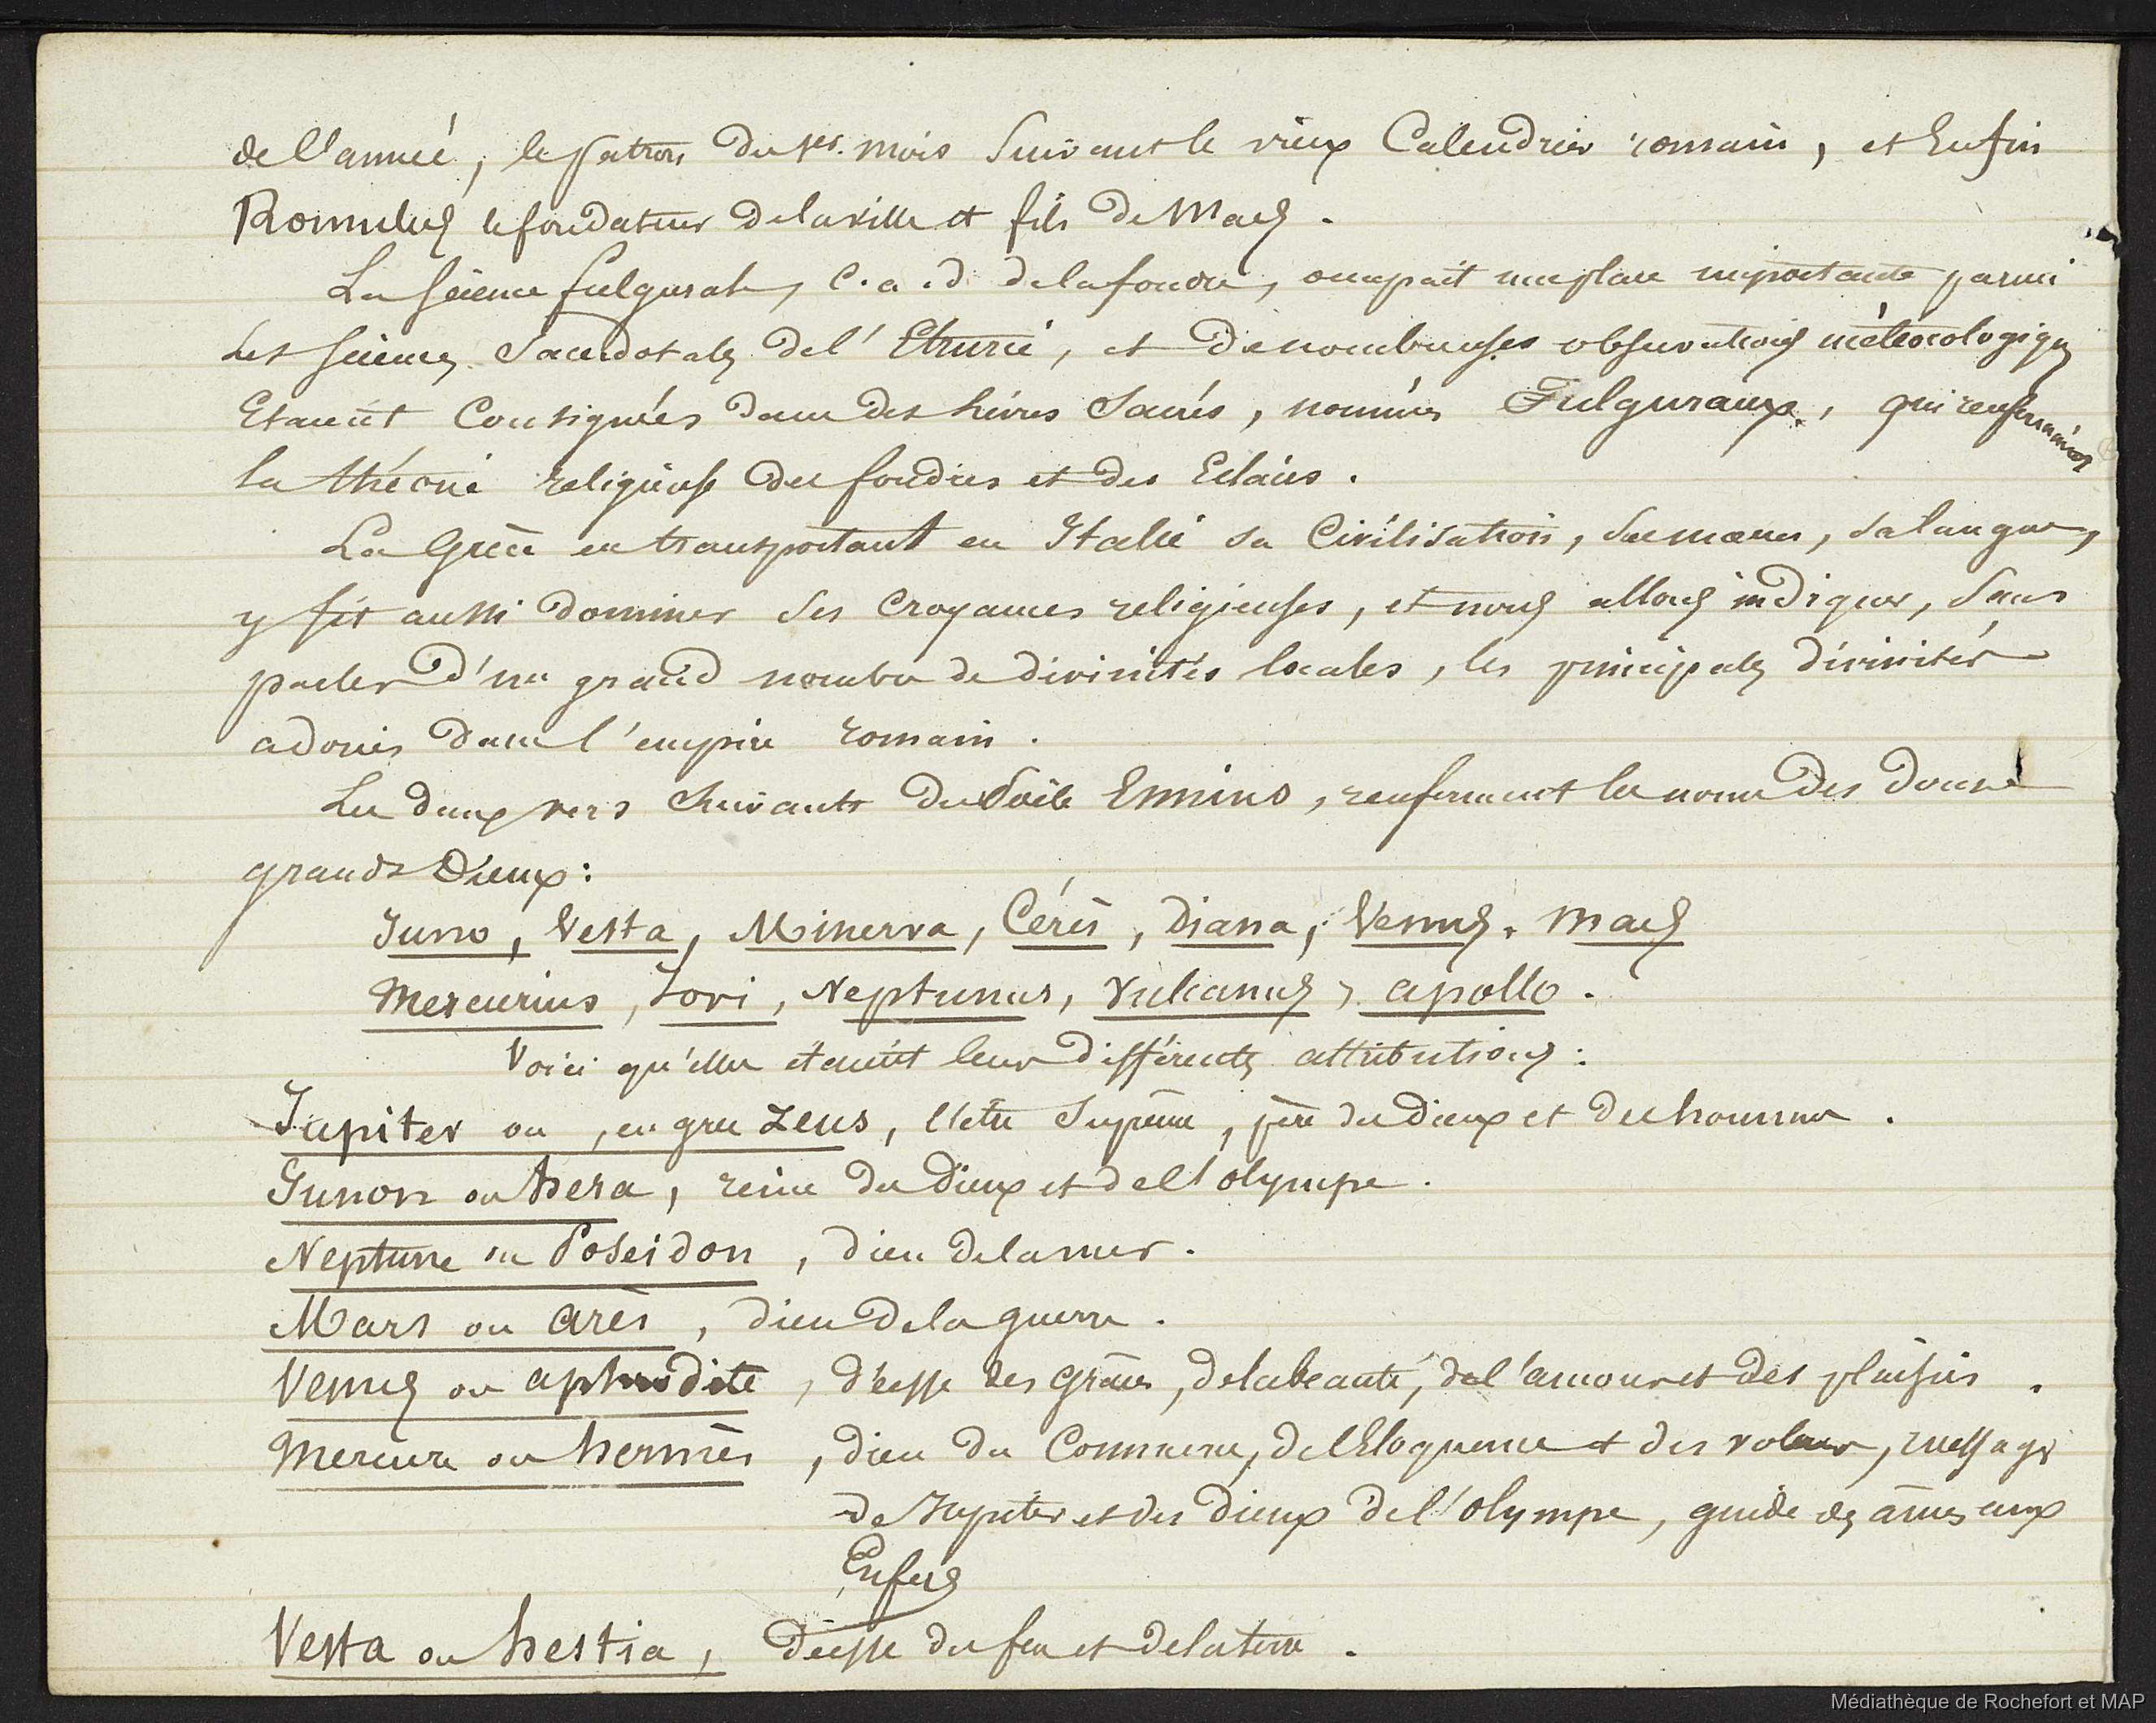 de l'année, le patron du 1er. mois suivant le vieux Calendrier romain, et Enfin
Romulus le fondateur de la ville et fils de Mars.
La science fulgurale, c.a.d. de la foudre, occupait une place importante parmi
les sciences sacerdotales de l'Etrurie, et de nombreuses observations météorologiques
Etaient Consignées dans des livres Sacrés, nommés Fulguraux, qui renfermaient
la théorie religieuse des foudres et des Eclairs.
La Grèce en transportant en Italie sa Civilisation, ses mœurs, sa langue,
y fit aussi dominer ses Croyances religieuses, et nous allons indiquer, sans
parler d'un grand nombre de divinités locales, les principales divinités
adorées dans l'empire romain.
Les deux vers suivants du Poëte Ennius, renferment les noms des douze
grands Dieux:
Juno, Vesta, Minerva, Cérès, Diana, Venus, Mars
Mercurius, Jovi, Neptunus, Vulcanus, apollo.
Voici qu'elles étaient leurs différentes attributions:
Jupiter ou, en grec Zeus, l'être Suprême, père des Dieux et des hommes.
Junon ou hera, reine des Dieux et de l'olympe.
Neptune ou Poseidon, dieu de la mer.
Mars ou arès, dieu de la guerre.
Venus ou aphrodite, déesse des grâces, de la beauté, de l'amour et des plaisirs.
Mercure ou hermès, dieu du Commerce, de l'Eloquence et des voleurs, messager
de Jupiter et des dieux de l'olympe, guide des âmes aux
Enfers
Vesta ou hestia, déesse du feu et de la terre.
Médiathèque de Rochefort et MAP